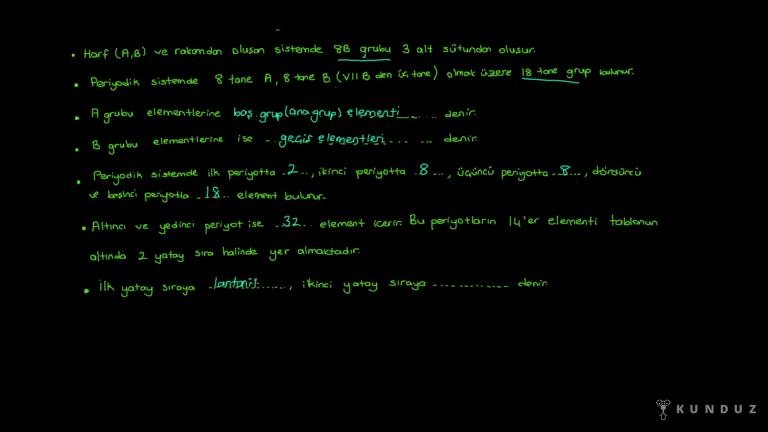 • Harf (A,B) ve rakamdan oluşan sistemde 8B grubu 3 alt sütundan oluşur.
• Periyodik sistemde 8 tane A, 8 tane B (VIIIB den üç tane) olmak üzere 18 tane grup bulunur.
• A grubu elementlerine baş grup (ana grup) elementi...... denir.
• B grubu elementlerine ise ..geçiş elementleri...... denir.
• Periyodik sistemde ilk periyotta ..2..., ikinci periyotta ..8..., üçüncü periyotta ..8..., dördüncü
ve beşinci periyotta ..18... element bulunur.
• Altıncı ve yedinci periyot ise ...32... element içerir. Bu periyotların 14'er elementi tablonun
altında 2 yatay sıra halinde yer almaktadır.
• İlk yatay sıraya ..lantanit......, ikinci yatay sıraya ............. denir.
KUNDUZ